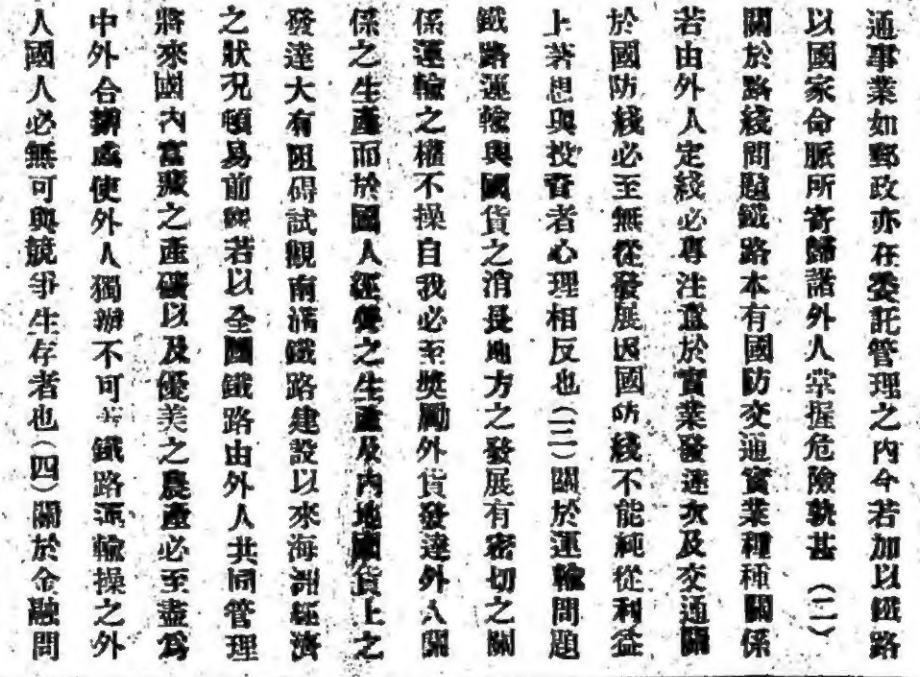 通事業如郵政亦在委託管理之內今若加以鐵路
以國家命脈所寄歸諸外人掌握危險孰甚（二）
關於路綫問題鐵路本有國防交通實業種種關係
若由外人定綫必專注意於實業發達次及交通關
於國防綫必至無從發展因國防綫不能純從利益
上著想與投資者心理相反也（三）關於運輸問題
鐵路運輸與國貨之消長地方之發展有密切之關
係運輸之權不操自我必至獎勵外貨發達外人關
係之生產而於國人經營之生產及內地國貨上之
發達大有阻碍試觀南滿鐵路建設以來海湖經濟
之狀況頓易前與若以全國鐵路由外人共同管理
將來國內富藏之產礦以及優美之農產必至盡爲
中外合辦或使外人獨辦不可蓋鐵路運輸操之外
人國人必無可與競爭生存者也（四）關於金融問